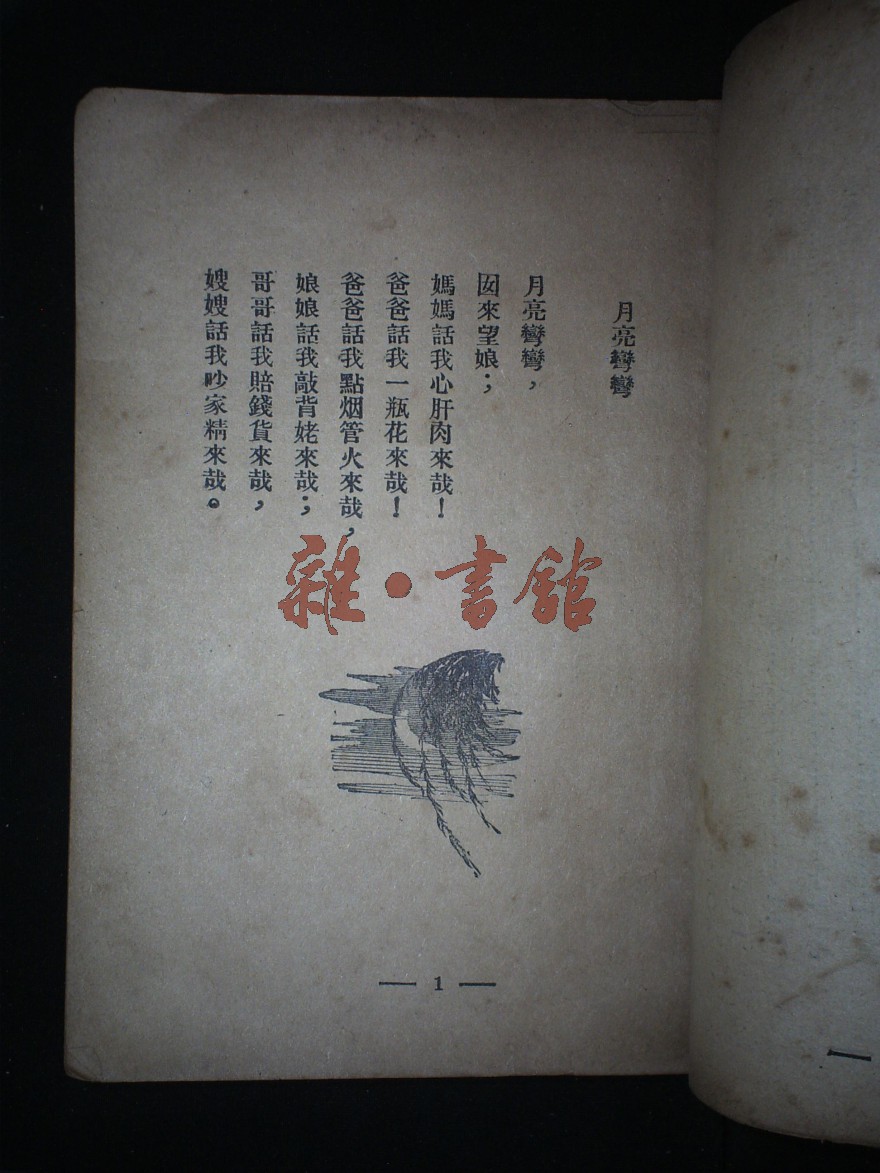 月亮彎彎
月亮彎彎，
囡來望娘；
媽媽話我心肝肉來哉！
爸爸話我一瓶花來哉！
爸爸話我點烟管火來哉，
娘娘話我敲背姥來哉；
哥哥話我賠錢貨來哉，
嫂嫂話我吵家精來哉。
雜·書館
— 1 —